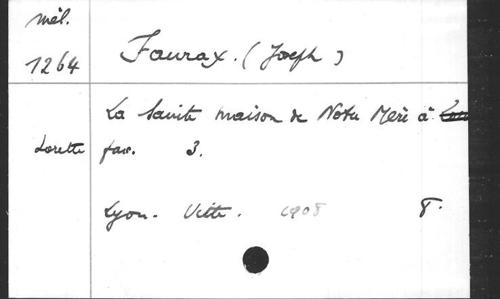 mél.
1264
Faurax. (Joseph)
La Sainte maison de Notre Mère à
Lorette fasc. 3.
Lyon. Vitte. 1908 8.